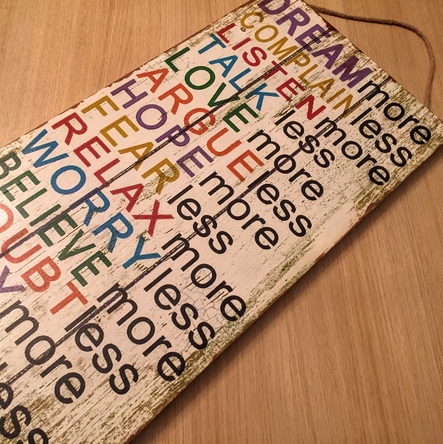 DREAM more
COMPLAIN less
LISTEN more
TALK less
LOVE more
ARGUE less
HOPE more
FEAR less
RELAX more
WORRY less
BELIEVE more
OUBT less
Y more
less